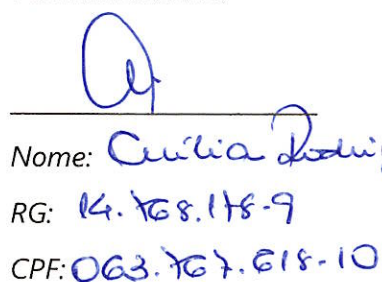 Nome: Cecília
RG: 14.768.178-9
CPF: 063.767.618-10